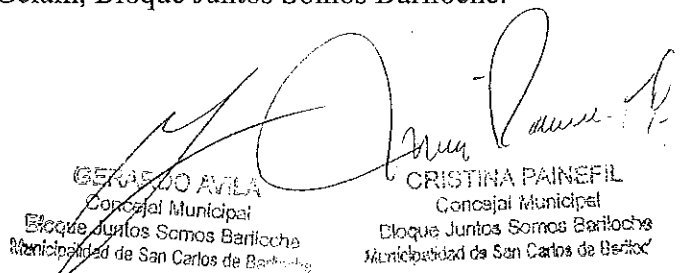 Bloque Juntos Somos Bariloche.
GERARDO AVILA
Concejal Municipal
Bloque Juntos Somos Bariloche
Municipalidad de San Carlos de Bariloche
CRISTINA PAINEFIL
Concejal Municipal
Bloque Juntos Somos Bariloche
Municipalidad de San Carlos de Bariloc